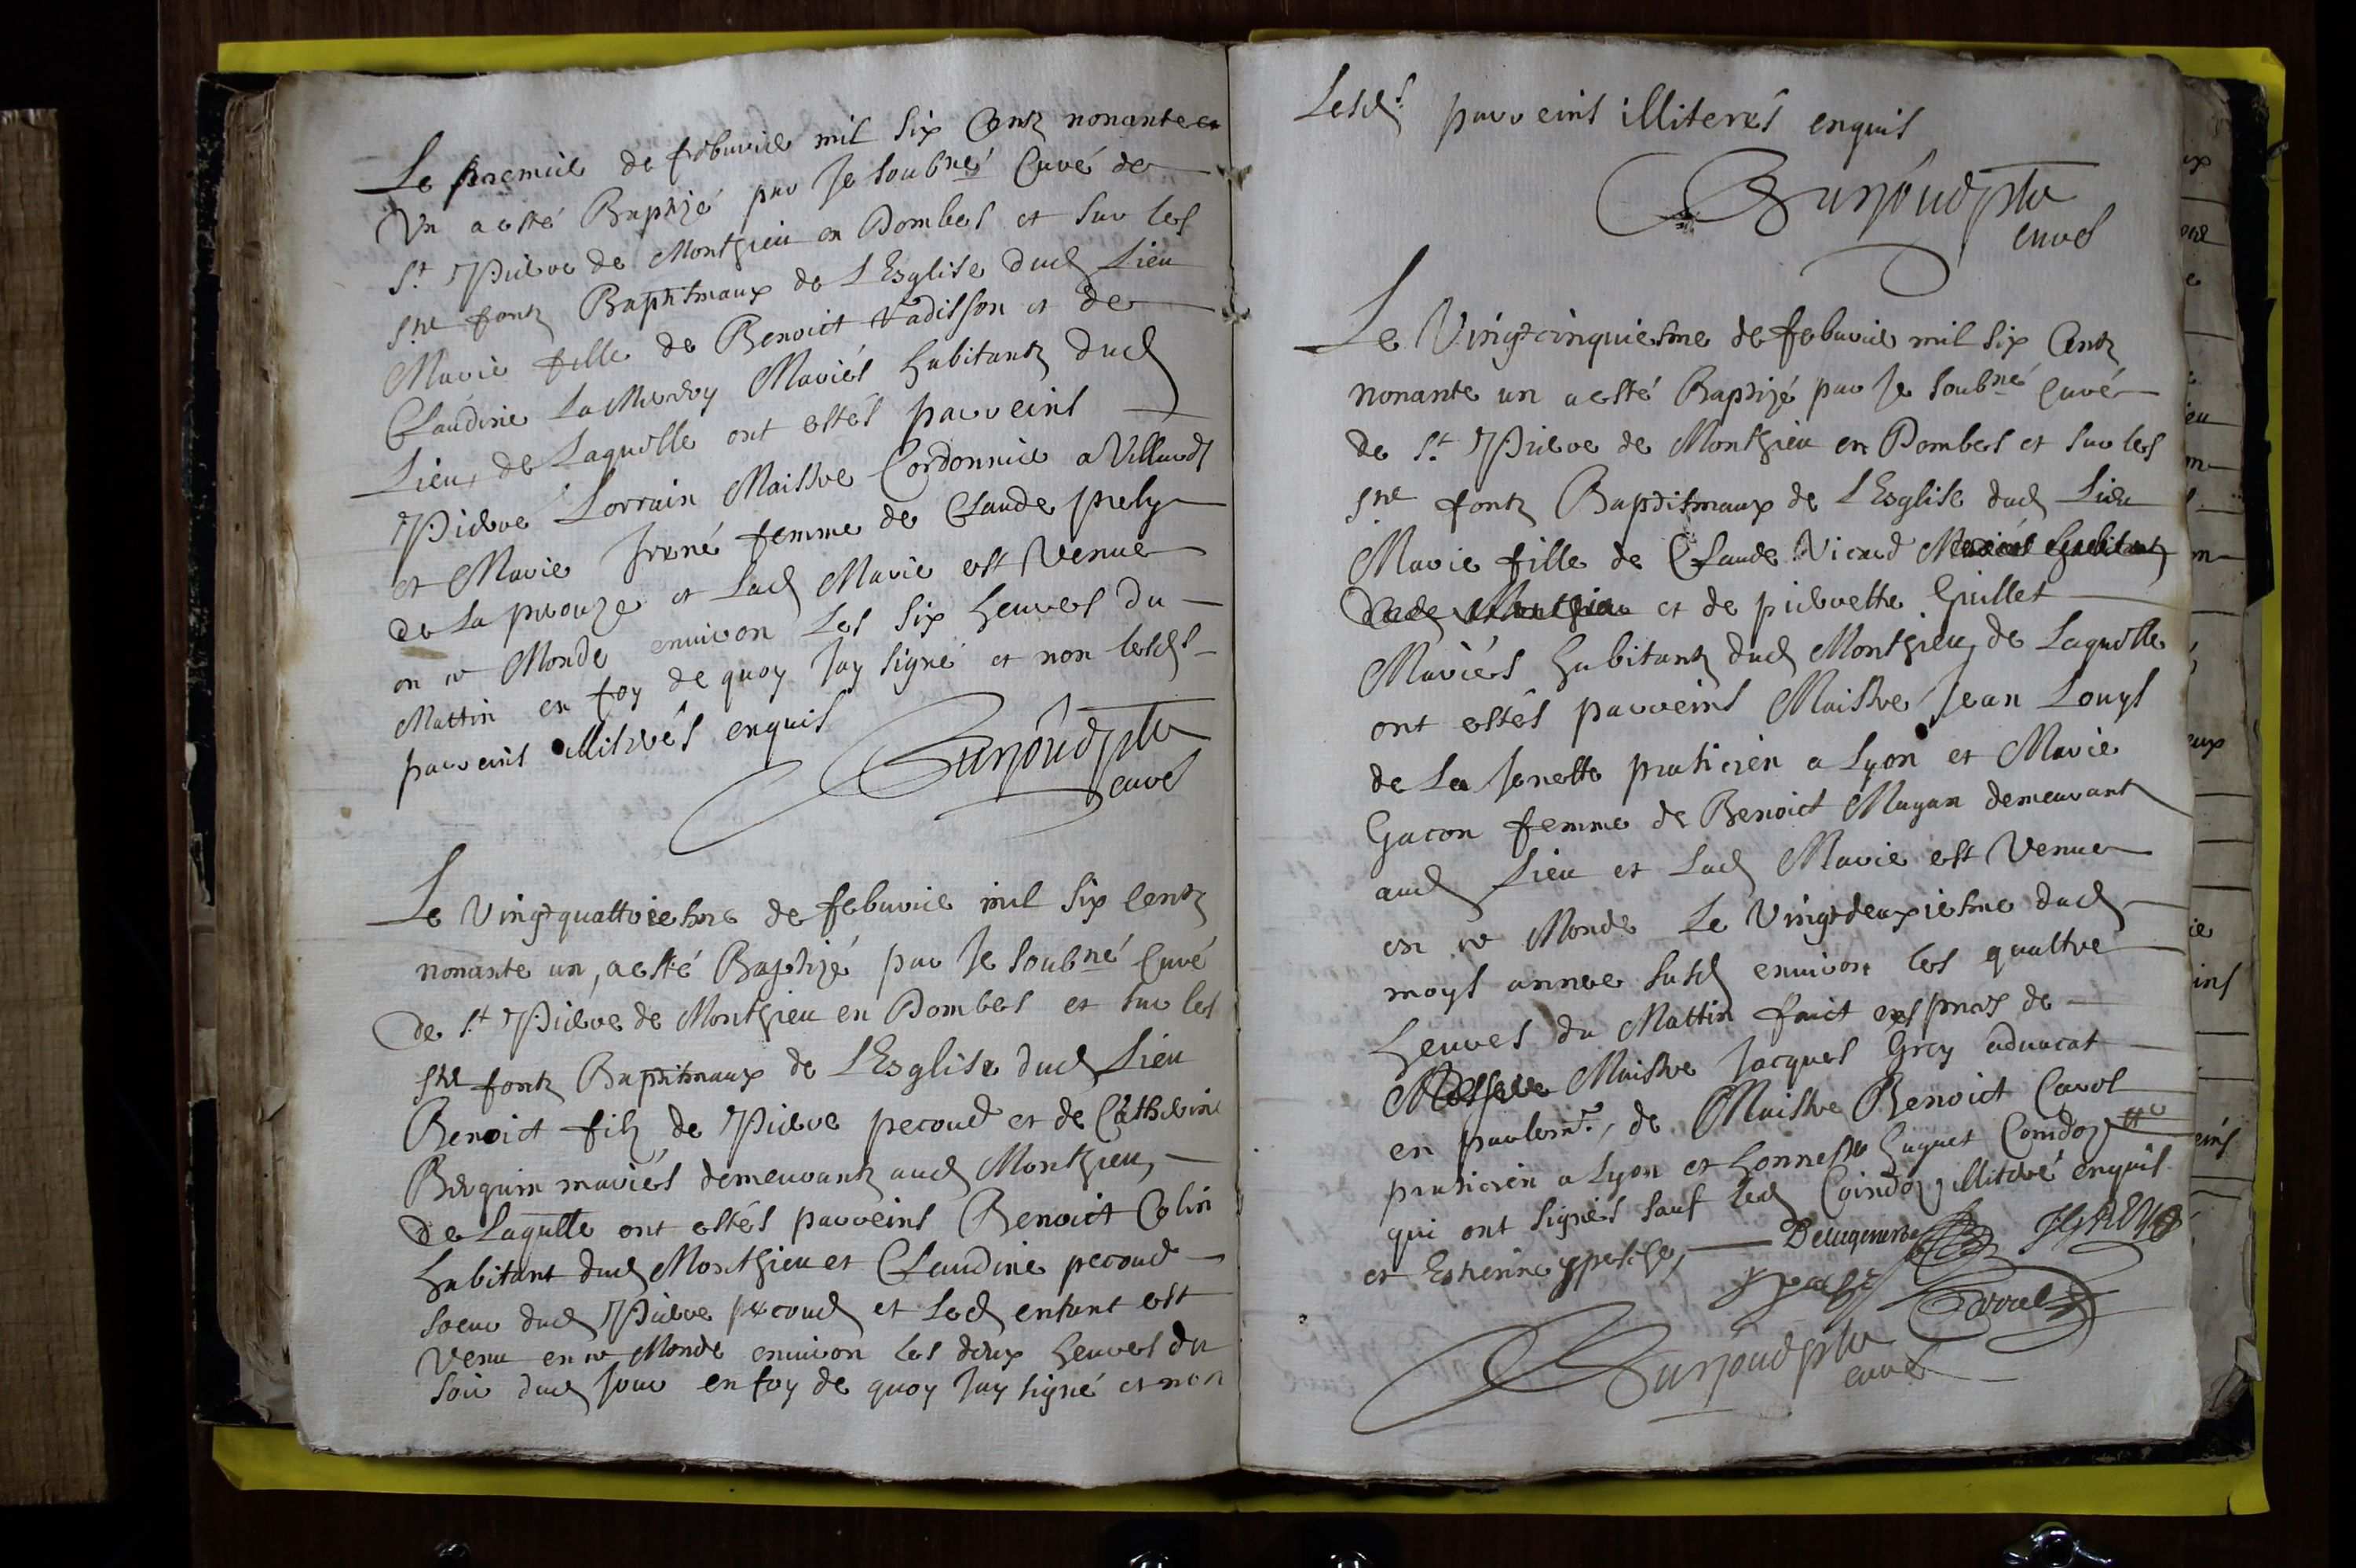 Le premier de febvrier mil six Cents nonante et
Un a esté Baptizé par Je soubné Curé de
St. Pierre de Monthieu en Dombes et sur les
Stes fonts Baptismaux de L'Esglise dud Lieu
Marie fille de Benoict Vadisson et de
Claudine La Mercy Mariés habitants dud
Lieu, de Laquelle ont estés parreins
Pierre Lorrain Maistre Cordonnier a Villards
et Marie femme de Claude prely
de La prouze et Lad Marie est Venue
en ce Monde environ Les six heures du
Mattin en foy de quoy Jay signé et non lesds
parreins illiterés enquis
Burjoud pbre
curé
Le Vingt quattriesme de febvrier mil six Cents
nonante un, a esté Baptizé par Je soubné Curé
de St Pierre de Monthieu en Dombes et sur les
Stes fonts Baptismaux de L'Esglise dud Lieu
Benoict fils de Pierre pecoud et de Catherine
Berguin mariés demeurants aud Monthieu,
de Laquelle ont estés parreins Benoict Colin
habitant dud Monthieu et Claudine pecoud
soeur dud Pierre pecoud et Led enfant est
Venu en ce Monde environ les deux heures du
soir dud Jour en foy de quoy Jay signé et non
Lesds parreins illiterés enquis
Burjoud pbre
curé
Le Vingt cinquiesme de febvrier mil six Cents
nonante un a esté Baptizé par Je soubné Curé
de St. Pierre de Monthieu en Dombes et sur les
Stes fonts Baptismaux de L'Esglise dud Lieu
Marie fille de Claude Vicard Mariés habitants
dud Monthieu et de pierrette Guillet
Mariés habitants dud Monthieu, de Laquelle
ont estés parreins Maistre Jean Louys
de La Jenette praticien a Lyon et Marie
Gacon femme de Benoict Magan demeurant
aud Lieu et Lad Marie est Venue
en ce Monde Le Vingt deuxiesme dud
moys annee susd environ les quattre
heures du Mattin faict es pnces de
Messire Maistre Jacques Grey advocat
en parlemt, de Maistre Benoict Carrel
praticien a Lyon et honneste huguet Coindoz
qui ont signés sauf Led Coindoz illiteré enquis
et Estienne
JGREY
Carrel
Burjoud pbre
curé